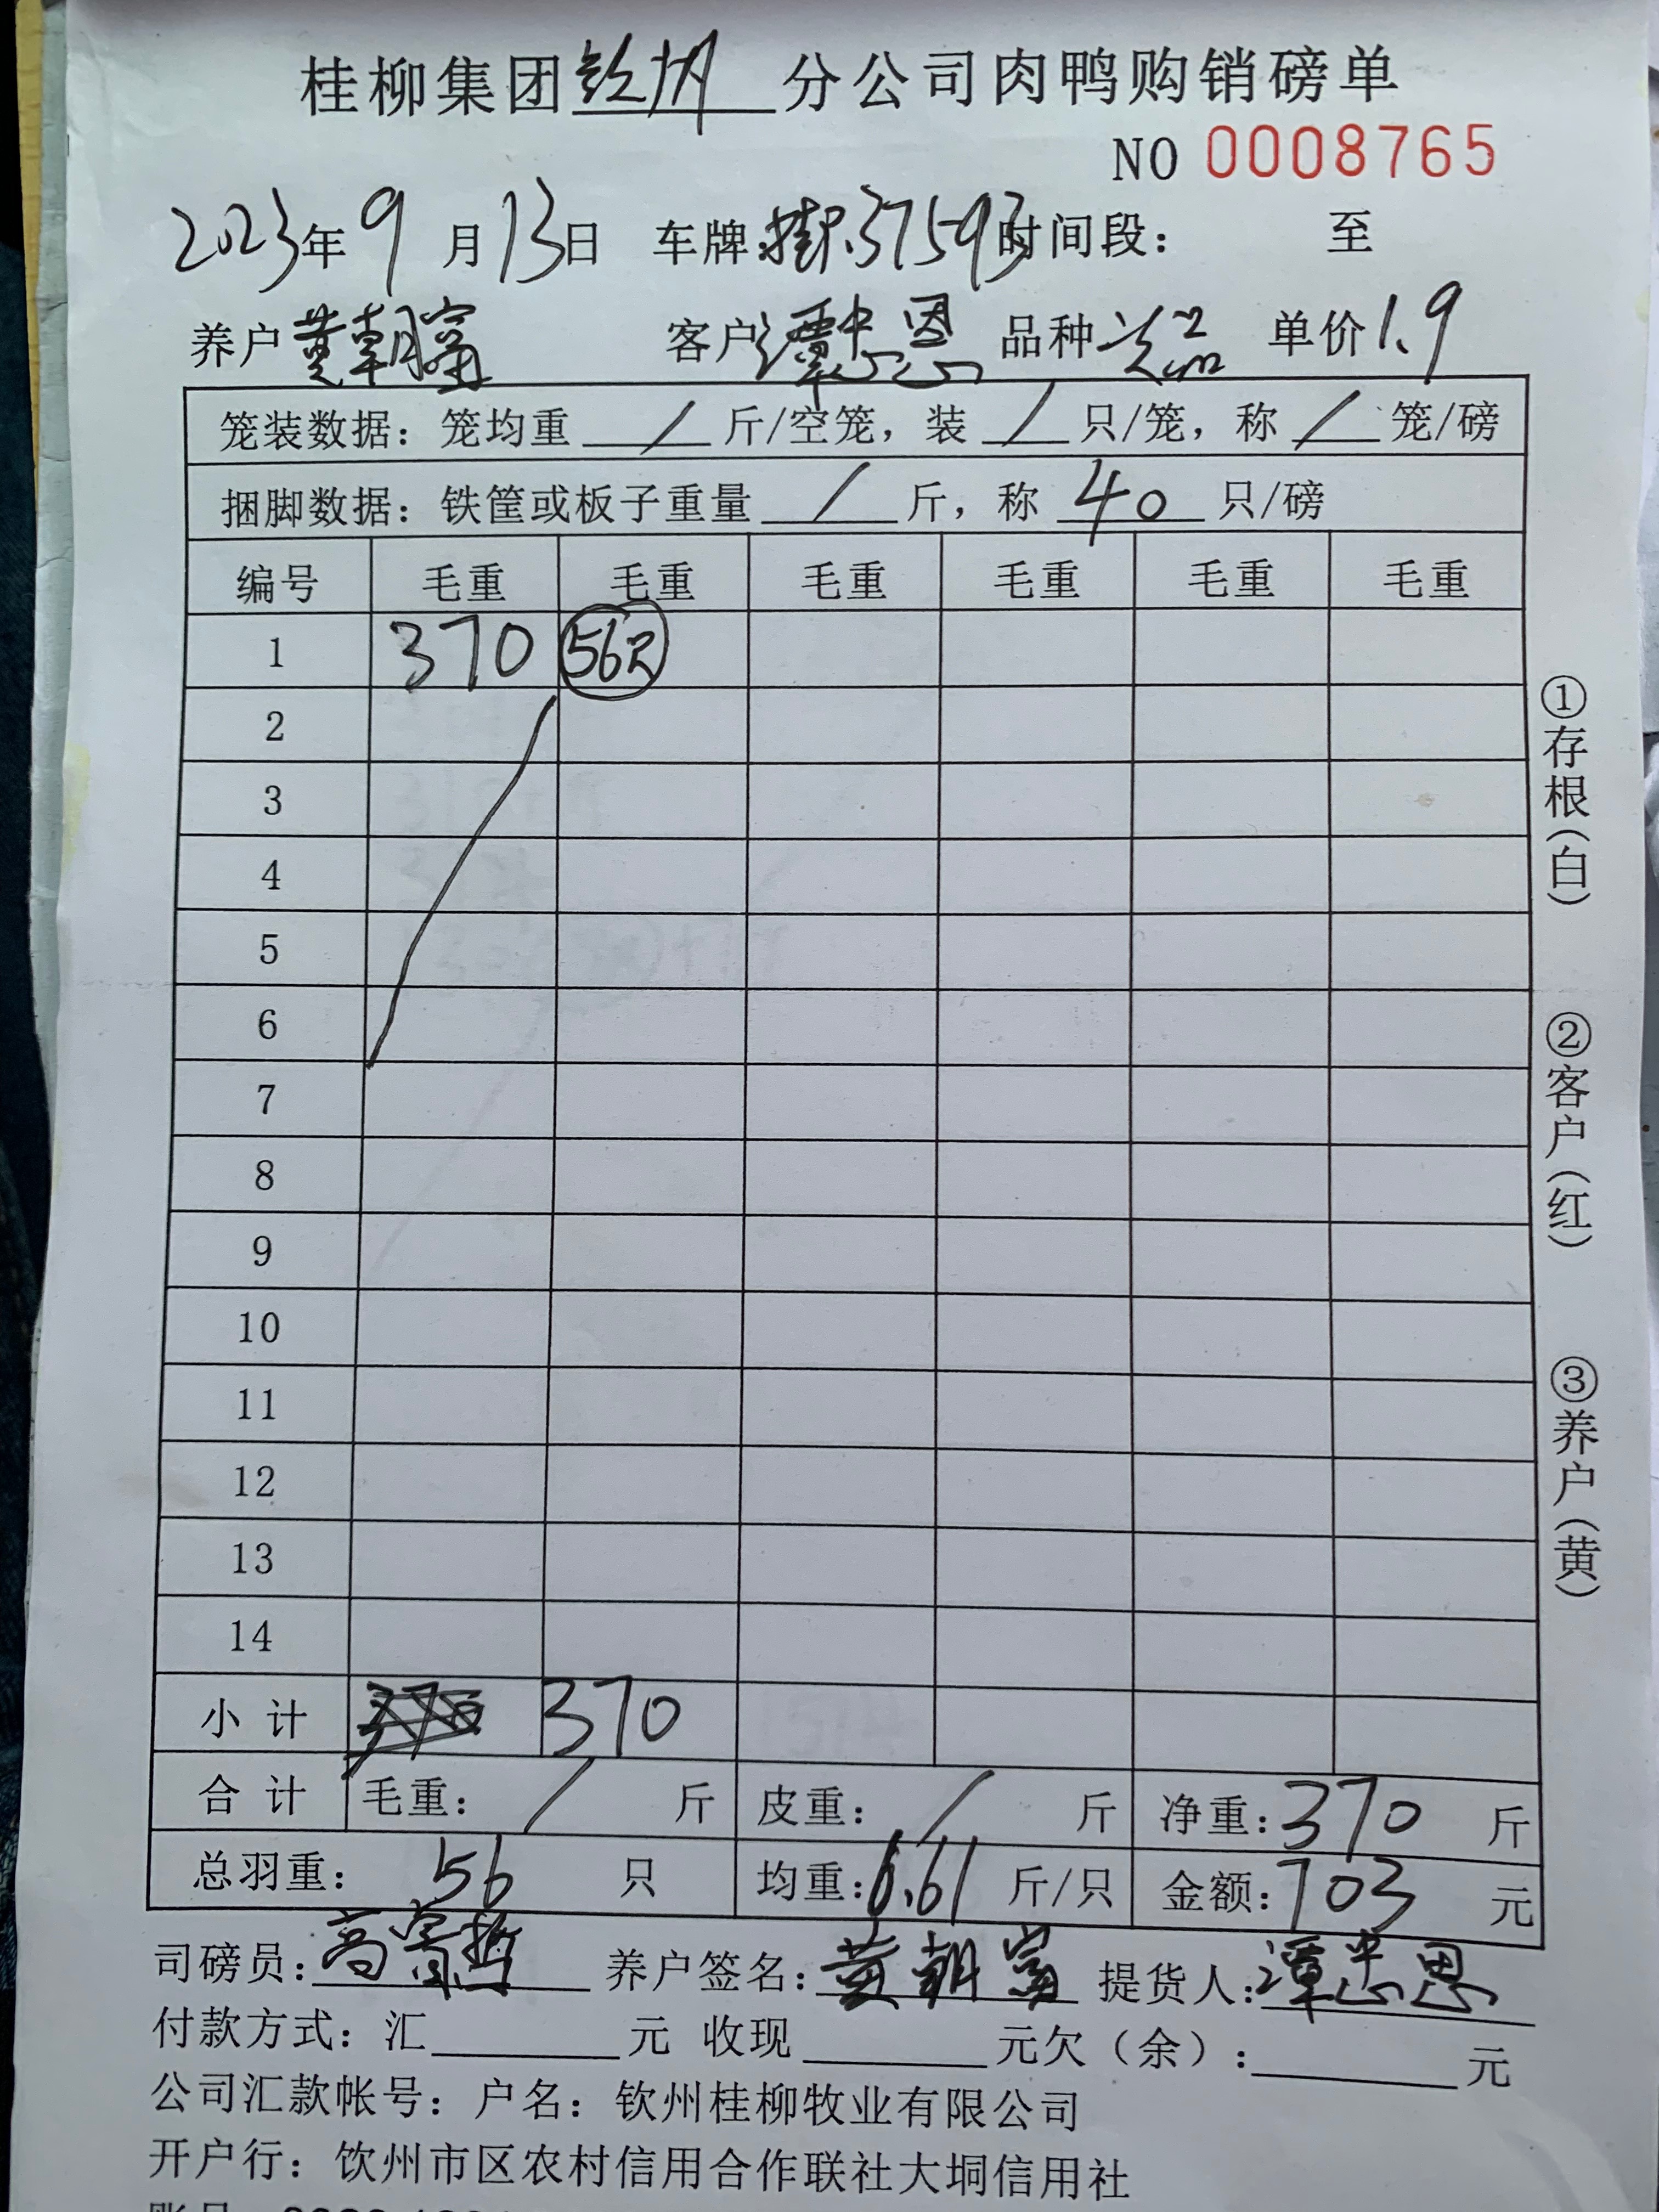 桂柳集团钦州分公司肉鸭购销磅单
NO 0008765
2023年9月13日 车牌:桂R.37593 时间段: 至
养户黄朝富 客户谭忠恩 品种次品 单价1.9
笼装数据: 笼均重 / 斤/空笼, 装 / 只/笼, 称 / 笼/磅
捆脚数据: 铁筐或板子重量 / 斤, 称 40 只/磅
编号 毛重 毛重 毛重 毛重 毛重 毛重
1 370 56只
2
3
4
5
6
7
8
9
10
11
12
13
14
小计 370 370
合计 毛重: / 斤 皮重: / 斤 净重:370 斤
总羽重: 56 只 均重:6.61 斤/只 金额:703 元
司磅员:高 养户签名:黄朝富 提货人:谭忠恩
付款方式: 汇 元 收现 元欠(余): 元
公司汇款帐号: 户名: 钦州桂柳牧业有限公司
开户行: 钦州市区农村信用合作联社大垌信用社
①存根(白)
②客户(红)
③养户(黄)